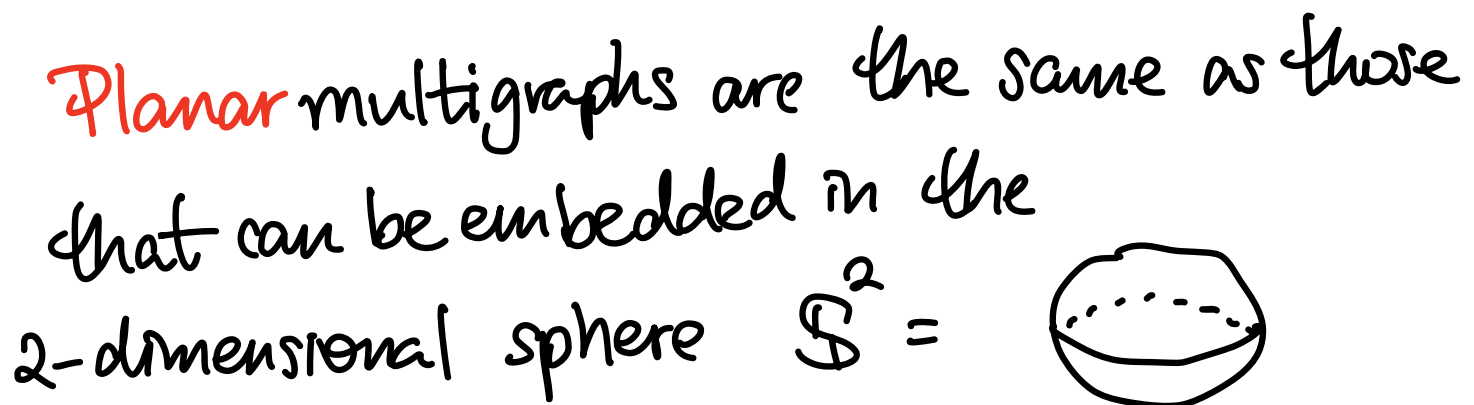 Planar multigraphs are the same as those
that can be embedded in the
2-dimensional sphere 𝕊² =